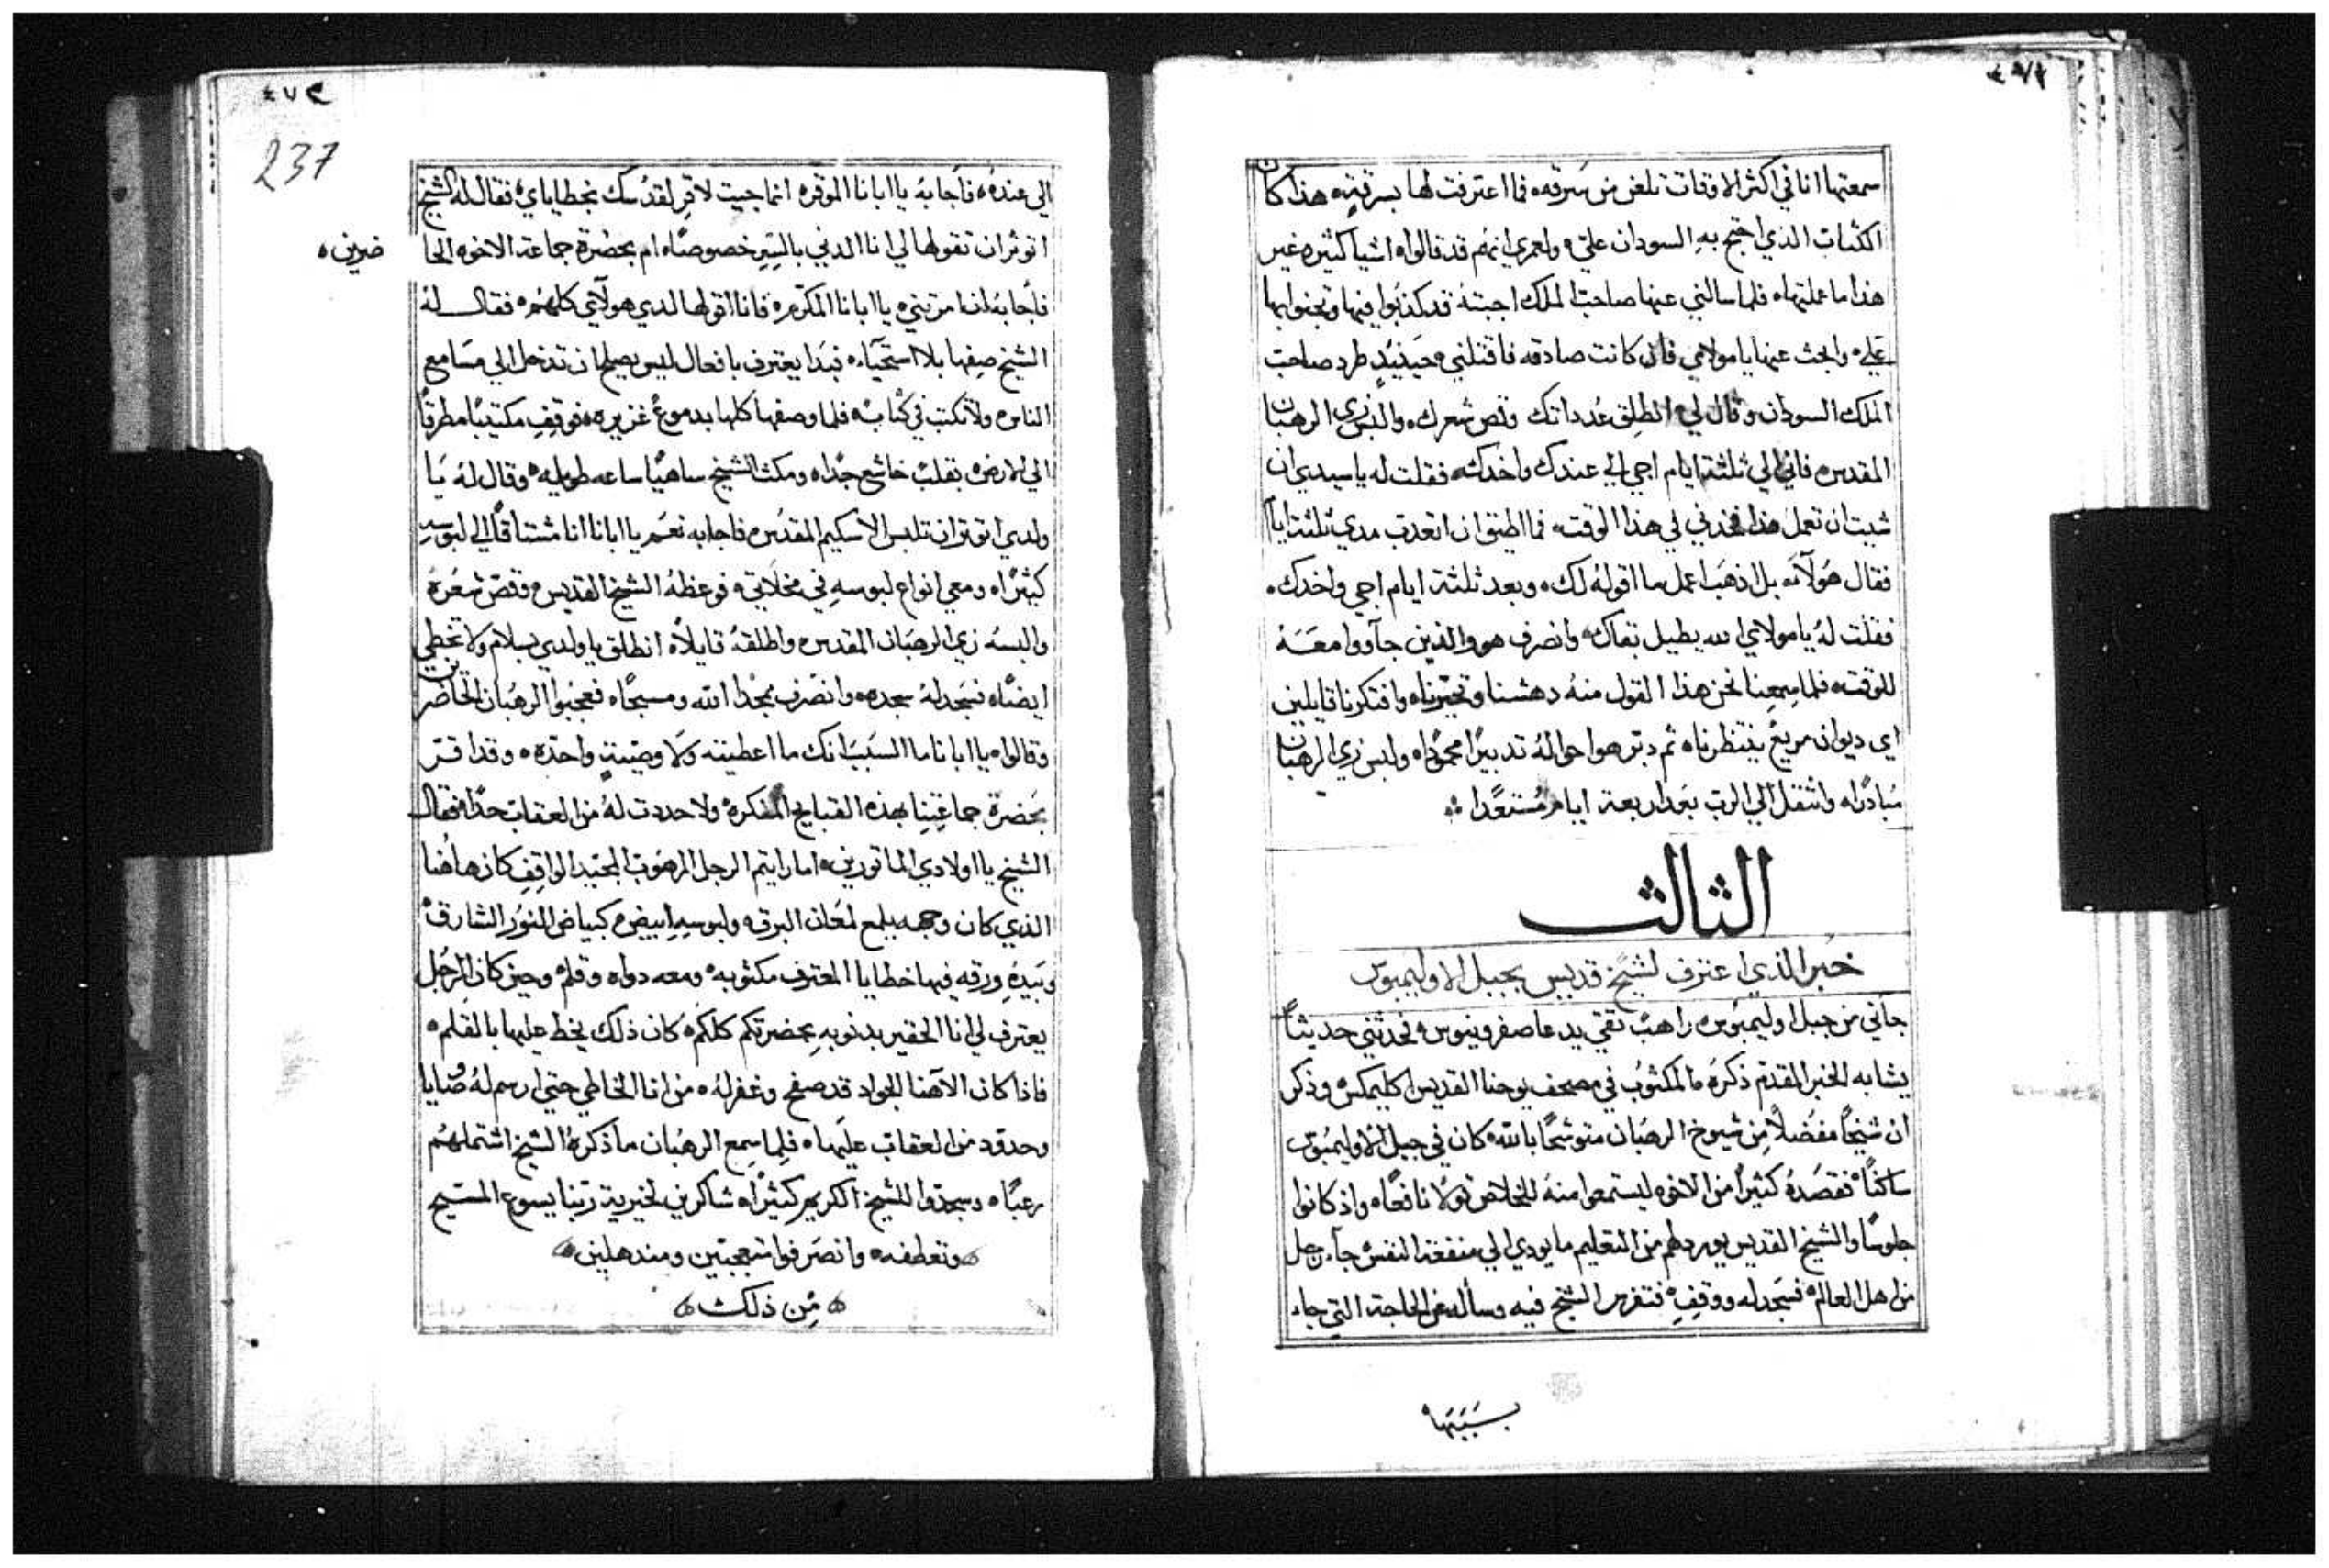 سمعتها انا في اكثر الاوقات تلعن من سرقه فما اعترفت لها بسرقتي ه هذا كان
الكتاب الذي احتج به السودان علي ه ولعمري انهم قد قالوا ه اشيا كثيره غير
هذا ما عملتها ه فلما سالني عنها صاحب الملك اجبته قد كذبوا فيها وتجنوا بها
علي ه وابحث عنها يا مولاي فان كانت صادقه فاقتلني ه حينيذٍ طرد صاحب
الملك السودان وقال لي انطلق عُد داتك وقص شعرك ه والبس زي الرهبان
المقدس ه فاني الي ثلثة ايام اجي الي عندك واخدك ه فقلت له يا سيدي ان
شيت ان تعمل هذا فخدني في هذا الوقت ه فما اطيق ان اتعدب مدي ثلثة ايام
فقال هولاء ه بل اذهب اعمل ما اقوله لك ه وبعد ثلثة ايام اجي واخدك ه
فقلت لهُ يا مولاي الله يطيل بقاك ه وانصرف هو والذين جآووا معَهُ
للوقت ه فلما سمعنا نحن هذا القول منهُ دهشنا وتحيّرنا ه وافتكرنا قايلين
اي ديوان مريع ينتظرنا ه ثم دبّر هوا حوالهُ تدبيرًا محمودًا ه ولبس زي الرهبان
مُبادرًا ه وانتقل الي الرب بعد اربعة ايام مُستعدًا ❖
الثالث
خبر الذي اعترف لشيخ قديس بجبل الاوليمبوس
جآني من جبل اوليمبوس ه راهبٌ تقي يدعا صفرونيوس ه فحدثني حديثاً
يشابه الخبر المقدم ذكرَه المكتوب في مصحف يوحنا القديس اكليمكس ه وذكر
ان شيخًا مفضلاً من شيوخ الرهبان متوشحًا بالله ه كان في جبل الاوليمبوس
ساكنًا ه فقصدهُ كثيرًا من الاخوه ليستمعوا منهُ للخلاص قولا نافعًا ه واذ كانوا
جلوسًا والشيخ القديس يوردهم من التعليم ما يودي الي منفعة النفس ه جآء رجل
من اهل العالم ه فسجد له ووقف ه فتفرس الشيخ فيه وسأله عن الحاجة التي جاء
بسببها ه
٤٧٣
237
الي عنده ه فأجابهُ يا ابانا الموقر ه انما جيت لاقر لقدسك بخطاياي ه فقال له الشيخ
اتوثر ان تقولها لي انا الدني بالسِرِ خصوصًا ه ام بحضرة جماعة الاخوه الحا
ضرين ه
فأجابهُ ان امرتني ه يا ابانا المكرم ه فانا اقولها لدي هولآي كلهم ه فقال لهُ
الشيخ صفها بلا استحيآء ه فبدا يعترف بافعال ليس يصلح ان تدخل الي مسامع
الناس ه ولا تكتب في كتاب ه فلما وصفها كلها بدموع غزيره ه وقف مكتيبًا مطرقًا
الي الارض ه بقلبٍ خاشع جدًا ه ومكث الشيخ ساهيًا ساعه طويله ه وقال لهُ يَا
ولدي اتوثر ان تلبس الاسكيم المقدس ه فاجابه نعم يا ابانا انا مشتاقًا الي لبوسه
كثيرًا ه ومعي انواع لبوسه في مخلاتي ه فوعظهُ الشيخ القديس ه وقصّ شعرهُ
والبسهُ زي الرهبان المقدس ه واطلقهُ قايلاً ه انطلق يا ولدي بسلام ولا تخطي
ايضًا ه فسجد لهُ سجده ه وانصرف ممجدًا الله ومسبحًا ه فعجبوا الرهبان الحاضرين
وقالوا ه يا ابانا ما السبب انك ما اعطيته ولا وصية واحدة ه وقد اقرّ
بحضرة جماعتنا بهذه القبايح المنكره ه ولا حددت لهُ من العقاب حدًا ه فقال
الشيخ يا اولادي الماثورين ه اما رايتم الرجل المرهوب المجيد الواقف كان هاهُنا
الذي كان وجهه يلمع لمعان البرق ه ولبوسهِ ابيض ه كبياض النور الشارق ه
وبيدهِ ورقه فيها خطايا المعترف مكتوبه ه ومعه دواه وقلم ه وحين كان الرجل
يعترف لي انا الحقير بدنوبهِ بحضرتكم كلكم ه كان ذلك يخط عليها بالقلم ه
فاذا كان الآهنا الجواد قد صفح وغفر لهُ ه من انا الخاطي حتي ارسم لهُ وصايا
وحدود من العقاب عليها ه فلما سمع الرهبان ما ذكرهُ الشيخ اشتملهم
رعبًا ه وسجدوا للشيخ اكريم كثيرًا ه شاكرين لخيرية ربّنا يسوع المسيح
وتعطفه ه وانصرفوا متعجبين ومندهلين ه
من ذلك ه